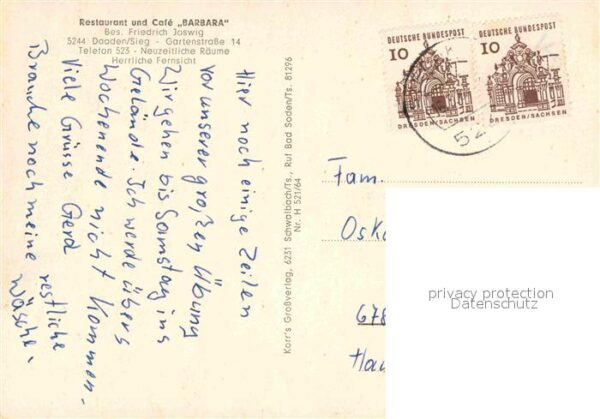 Restaurant und Café „BARBARA"
Bes. Friedrich Joswig
5244 Daaden/Sieg - Gartenstraße 14
Telefon 523 - Neuzeitliche Räume
Herrliche Fernsicht
Hier noch einige Zeilen
vor unserer großen Übung
Wir gehen bis Samstag ins
Gelände. Ich werde übers
Wochenende nicht kommen.
Viele Grüsse Gerd
Brauche noch meine restliche
Wäsche.
Korr's Großverlag, 6231 Schwalbach/Ts., Ruf Bad Soden/Ts. 81296
Nr. H 521/64
DEUTSCHE BUNDESPOST
10
DRESDEN/SACHSEN
DEUTSCHE BUNDESPOST
10
DRESDEN/SACHSEN
52
Fam.
Oska
678
Hau
privacy protection
Datenschutz